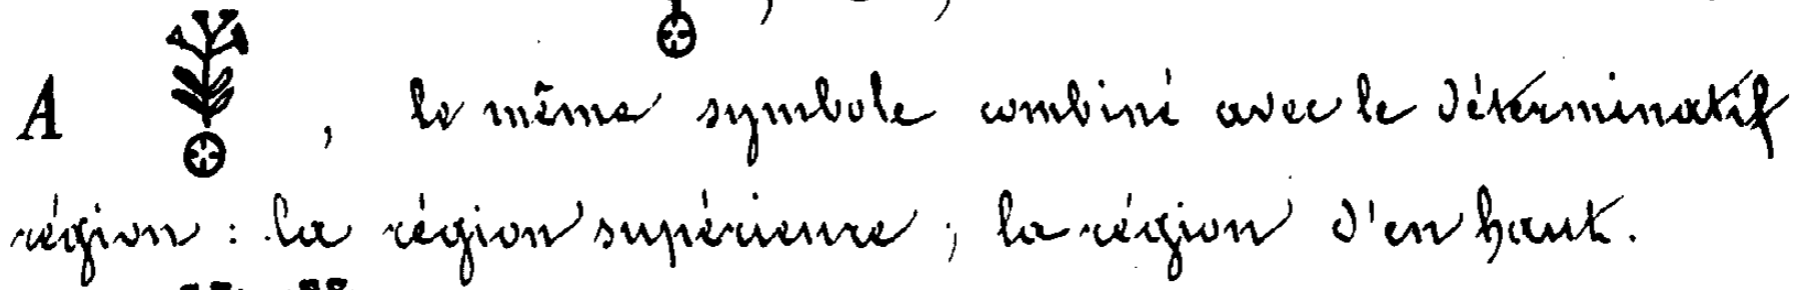 A 𓇗𓊖, le même symbole combiné avec le déterminatif
région : la région supérieure ; la région d'en haut.